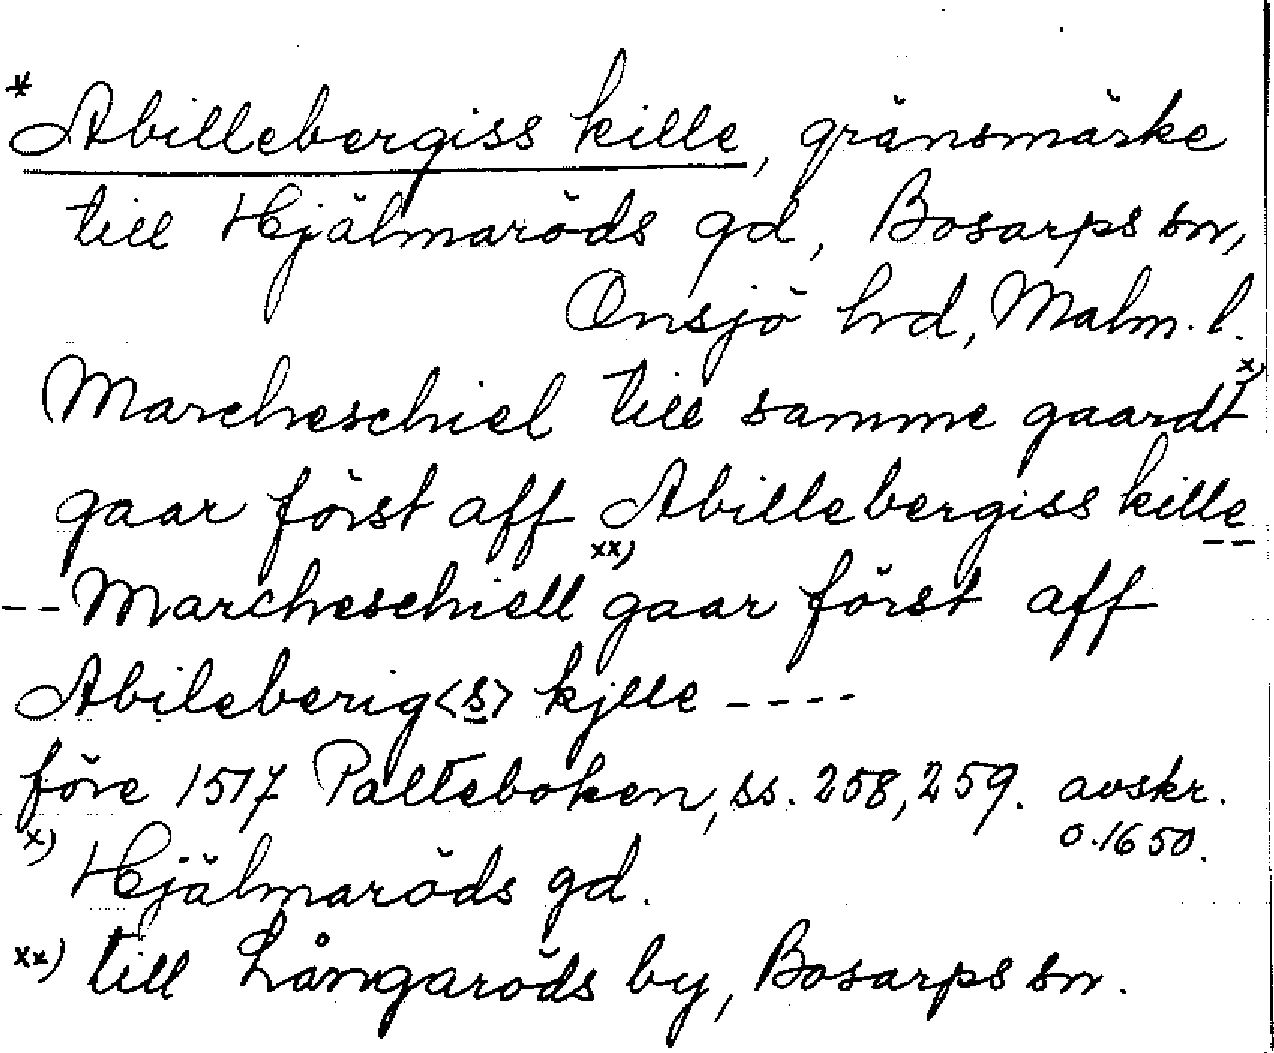 * Abillebergiss kille, gränsmärke
till Hjälmaröds gd, Bosarps sn,
Onsjö hrd, Malm. l.
Marcheschiel till samme gaardt x)
gaar först aff Abillebergiss kille
-- Marcheschiell xx) gaar först aff
Abileberig<s> kjlle ----
före 1517 Palteboken, ss. 258, 259. avskr.
o. 1650.
x) Hjälmaröds gd.
xx) till Långaröds by, Bosarps sn.